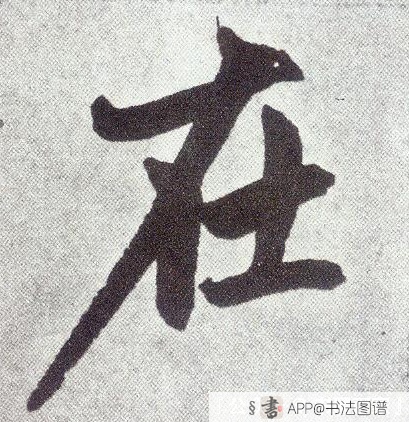 在
§ 書 APP@书法图谱